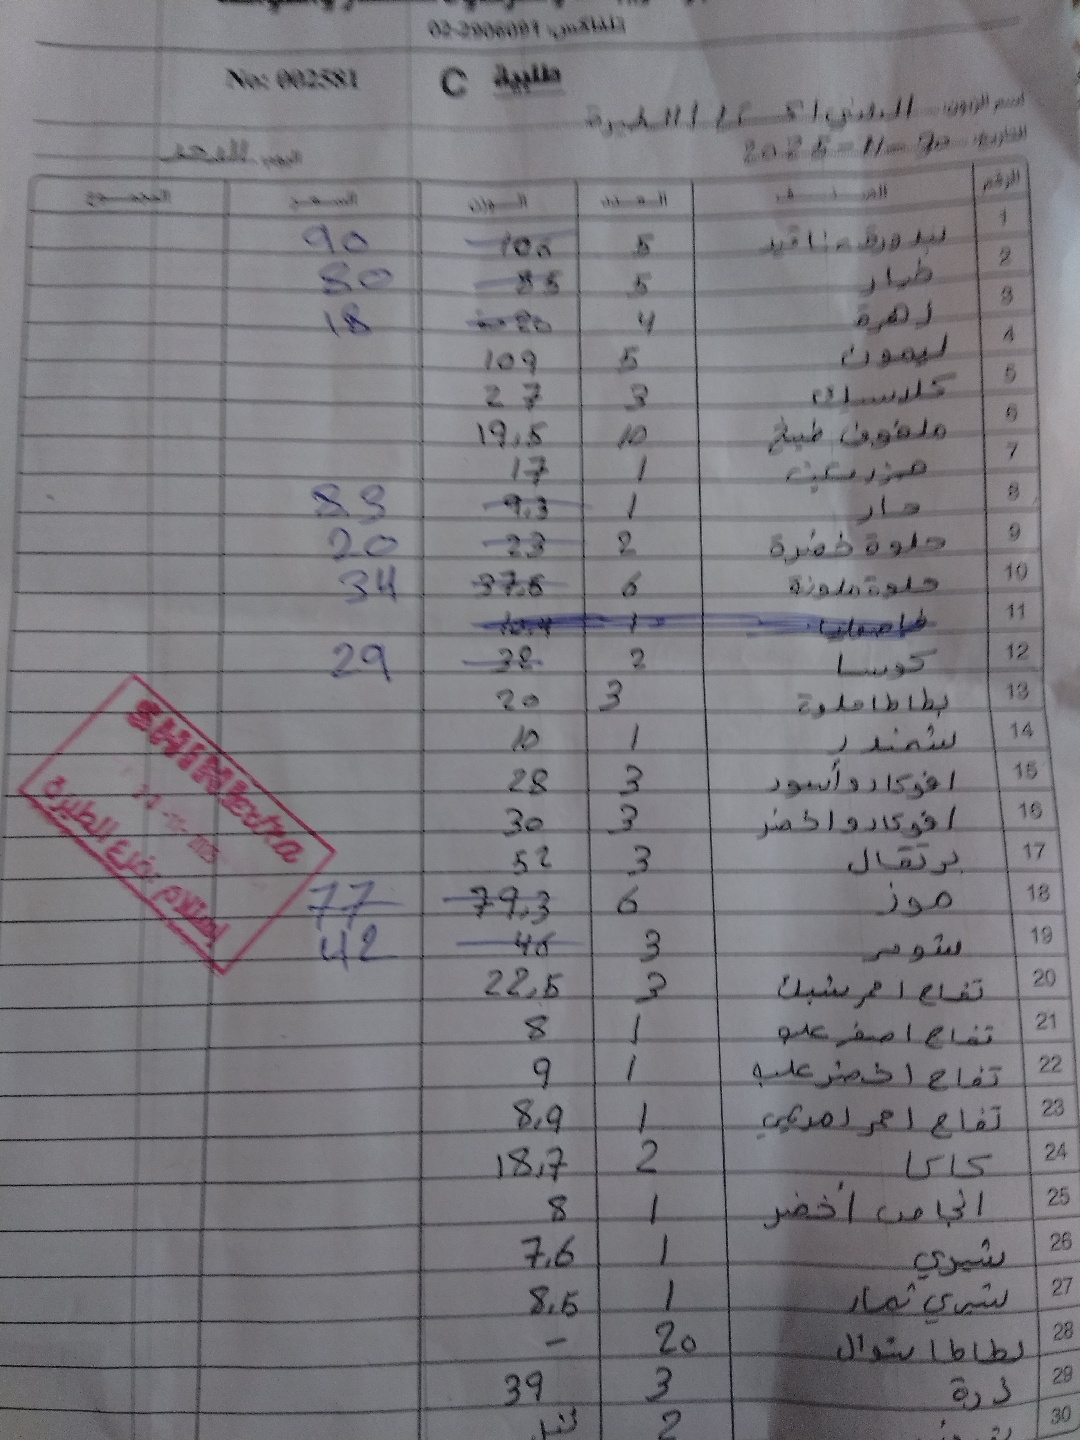 تلفاكس: 02-2906091
No: 002581 C طلبية
اسم الزبون: الطيرة
التاريخ: 2025-11-30 اليوم: الاحد
الرقم الصنف العدد الوزن السعر المجموع
1 بندورة عناقيد 5 106 90
2 خيار 5 85 80
3 زهرة 4 20 18
4 ليمون 5 109
5 كلاسيك 3 27
6 ملفوف طبيخ 10 19,5
7 1 17
8 حار 1 9,3 8.3
9 حلوة خضرة 2 23 20
10 حلوة ملونة 6 37,5 34
11 1 10,4
12 كوسا 2 32 29
13 بطاطا حلوة 3 20
14 شمندر 1 10
15 افوكادو أسود 3 28
16 افوكادو اخضر 3 30
17 برتقال 3 52
18 موز 6 79,3 77
19 شومر 3 46 42
20 تفاح احمر شبك 3 22,5
21 تفاح اصفر علب 1 8
22 تفاح اخضر علب 1 9
23 تفاح احمر امريكي 1 8,9
24 كاكا 2 18,7
25 انجاص أخضر 1 8
26 شيري 1 7,6
27 شيري ثمار 1 8,5
28 بطاطا شوال 20 -
29 ذرة 3 39
30 2
SHINI Extra
استلام فرع الطيرة